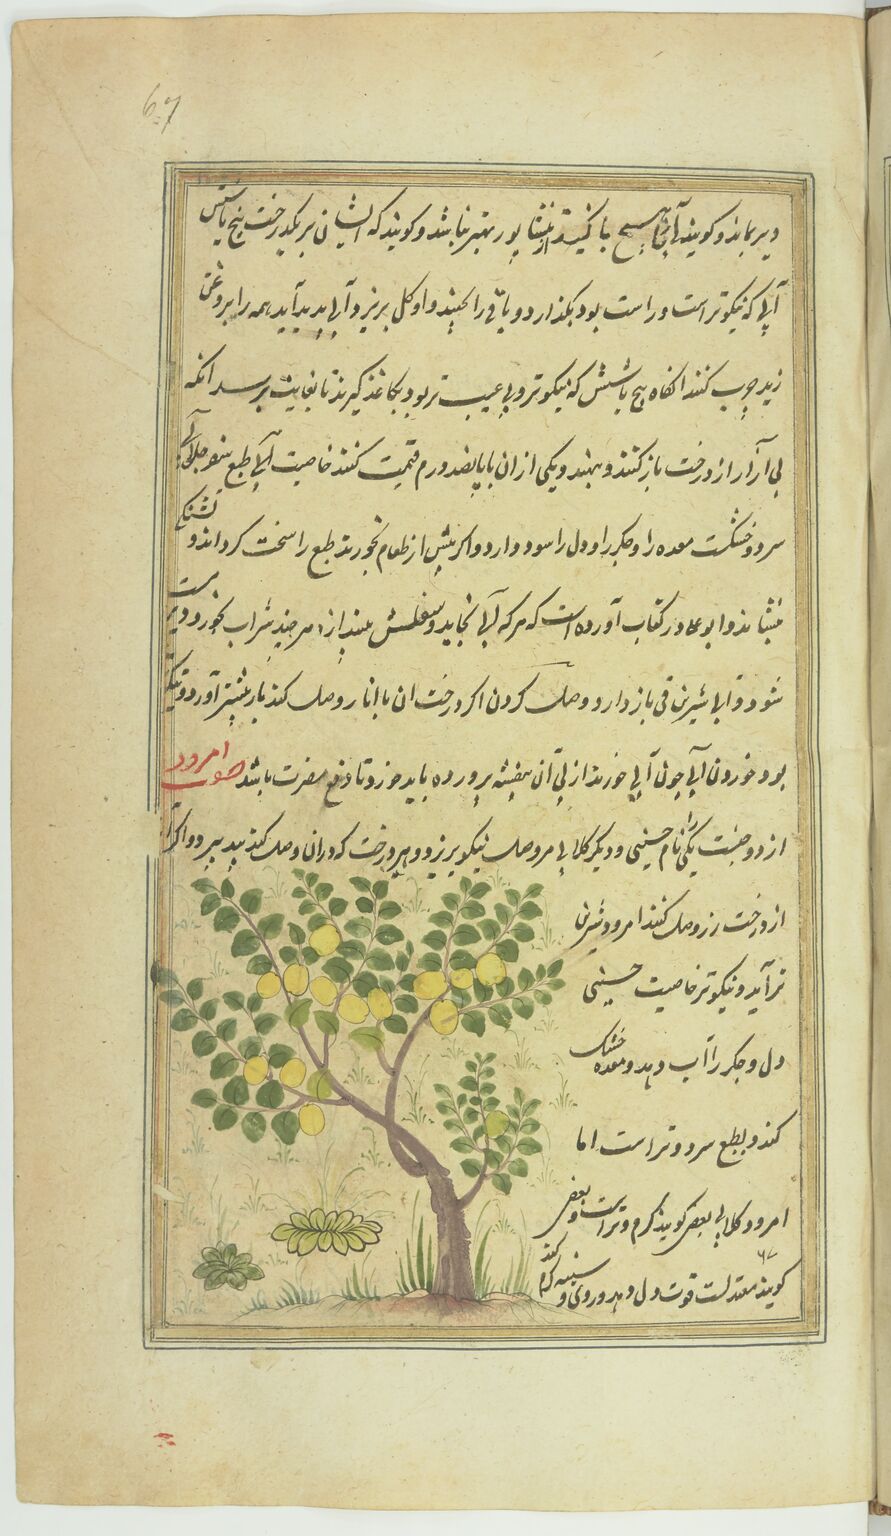 67
دیر بماند و کویند آنجا هیچ با کیست از نیشاپور بهتر نباشد و کویند که ایشان بر یکدرخت پنج یا شش
آبی که نیکوتر است و راست بود بگذارد و باقی را بچیند و او کل بریزد و آبی پدید آید همه را بروغن
زیت چرب کنند انکاه پنج یا شش که نیکوتر و بی عیب تر بود بکاغذ گیرند تا بغایت برسد انکه
بی آزار از درخت باز کنند و بنهند و یکی از ان با پانصد درم قیمت کنند خاصیت آبی طبع
سرد و خشکست معده را و جکر را و دل را سود دارد و اکر پیش از طعام بخورند طبع را سخت کرداند و تشنکی
بنشاند و ابو علی در کتاب آورده است که هر که آبی بخاید و ثفلش بیندازد هر چند شراب بخورد دیر مست
شود و آبی شیرین قی باز دارد وصل کردن اکر درخت ان با انار وصل کند بار بیشتر آورد و نیک
بود خوردن آبی چون آبی خورند از پی آن بنفشه پرورده باید خورد تا دفع مضرت باشد صورت امرود
از دو جنست یکی را نام حسینی و دیگر کلابی امرو وصل نیکو پزیرد و بهر درخت که در ان وصل کنند بپذیرد و اکر
از درخت رز وصل کنند امرود شیرین
تر آید و نیکوتر خاصیت حسینی
دل و جکر را آب دهد و معده خشک
کند و بطبع سرد و تر است اما
امرود کلابی بعضی کویند کرم و تر است و بعضی
کویند معتدلست قوت دل دهد و روی و سینه کرم کند
۶۷